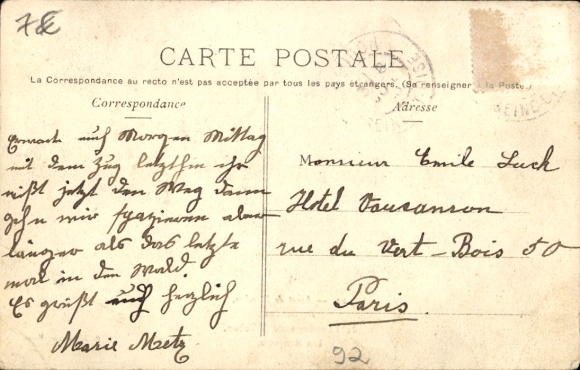 78
CARTE POSTALE
La Correspondance au recto n'est pas acceptée par tous les pays étrangers. (Se renseigner à la Poste)
Correspondance
Adresse
auf Morgen Mittag
mit dem Zug letzthin ihr
wißt jetzt den Weg dann
gehn wir spazieren aber
länger als das letzte
mal in den Wald.
Es grüßt euch herzlich
Marie Metz
Monsieur Emile Luck
Hotel Vaucanson
rue du Vert-Bois 50
Paris.
92